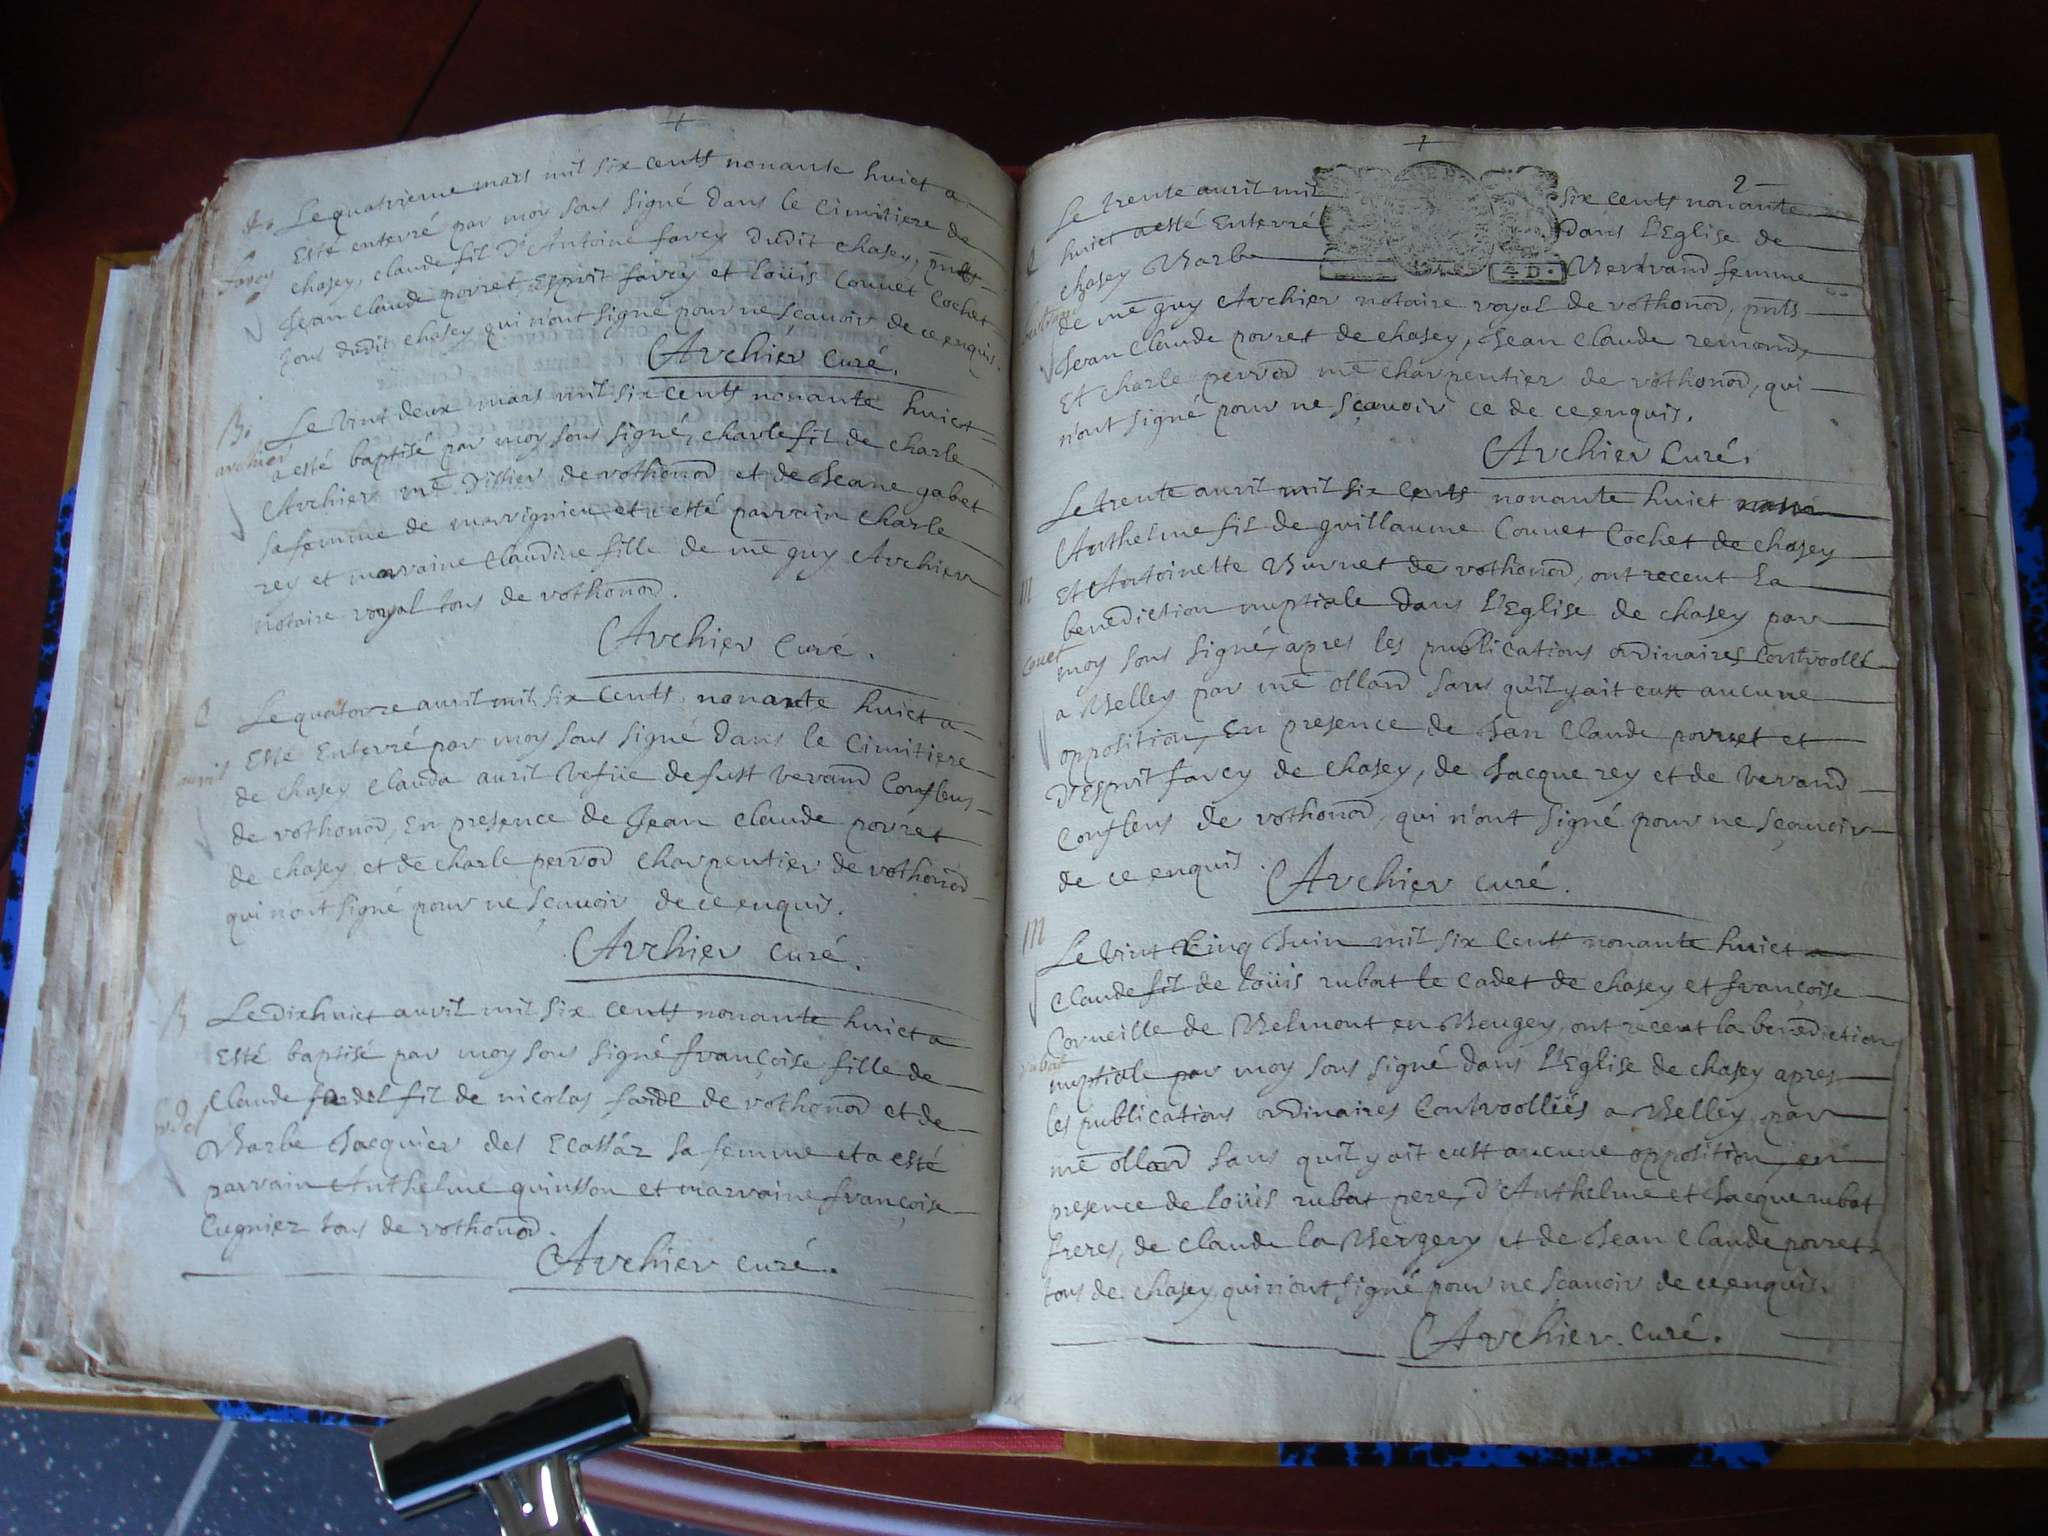 Le quatrieme mars mil six cents nonante huict a
Esté enterré par moy sous signé dans le Cimitiere de
chasey, claude fil d'Antoine favey dudit chasey, pnts
Jean claude povret, Esprit favey et loüis Couvet Cochet
tous dudit chasey qui n'ont signé pour ne sçauoir de ce enquis.
Archier Curé.
B.
archier
Le vint deux mars mil six cents nonante huict
a esté baptisé par moy sous signé, charle fil de charle
Archier me de vothonod et de Jeane gabet
sa femme de marvignieu et a esté parrain charle
rey et marraine Claudine fille de me guy Archier
notaire royal tous de vothonod.
Archier Curé.
C
avril
Le quatorze auril mil six cents nonante huict a
Esté Enterré par moy sous signé dans le Cimitiere
de chasey Clauda auril vefüe de fust verand Conflens
de vothonod, En presence de Jean claude povret
de chasey et de charle perrod charpentier de vothonod
qui n'ont signé pour ne sçauoir de ce enquis.
Archier curé.
B
Le dixhuict auril mil six cents nonante huict a
Esté baptisé par moy sous signé françoise fille de
Claude fardel fil de nicolas fardel de vothonod et de
Barbe Jacquier des Ecassaz sa femme et a esté
parrain Anthelme quinson et marraine françoise
Cugniez tous de vothonod.
Archier curé.
2
Le trente auril mil six cents nonante
huict a esté Enterré dans l'Eglise de
chasey Barbe Bertrand femme
4 D.
de me guy Archier notaire royal de vothonod, pnts
Jean Claude povret de chasey, Jean Claude remond,
Et charle perrod me charpentier de vothonod, qui
n'ont signé pour ne sçauoir ce de ce enquis.
Archier Curé.
M
Couet
Le trente auril mil six Cents nonante huict
Anthelme fil de guillaume Couvet Cochet de chasey
Et Antoinette Burnet de vothonod, ont receut la
benediction nuptiale dans l'Eglise de chasey par
moy sous signé, apres les publications ordinaires Controollé
a Belley par me ollard sans qu'il y ait eust aucune
opposition, En presence de Jan Claude povret et
d'Esprit favey de chasey, de Jacque rey et de verand
Conflens de vothonod, qui n'ont signé pour ne sçauoir
de ce enquis.
Archier curé.
M
rubat
Le vint Cinq Juin mil six Cents nonante huict
Claude fil de loüis rubat le cadet de chasey et françoise
Corneille de Belmont en Beugey, ont receut la benediction
nuptiale par moy sous signé dans l'Eglise de chasey apres
les publications ordinaires Controolliés a Belley par
me ollard sans qu'il y ait eust aucune opposition, en
presence de loüis rubat pere, d'Anthelme et Jacque rubat
freres, de claude la Bergery et de Jean Claude povret
tous de chasey qui n'ont signé pour ne sçauoir de ce enquis.
Archier curé.